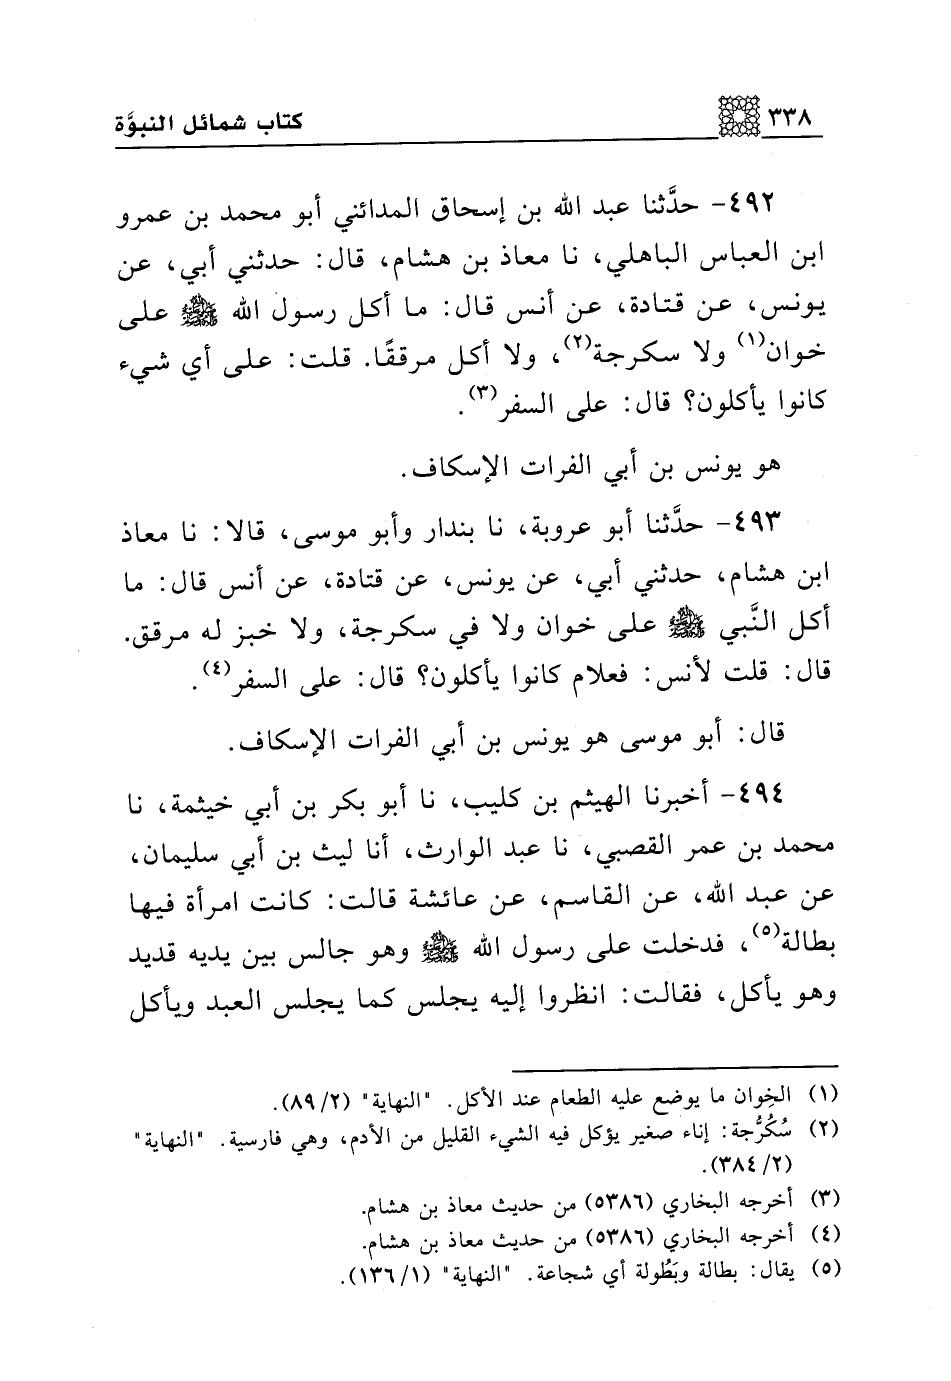 ٣٣٨ كتاب شمائل النبوَّة
٤٩٢- حدَّثنا عبد الله بن إسحاق المدائني أبو محمد بن عمرو
ابن العباس الباهلي، نا معاذ بن هشام، قال: حدثني أبي، عن
يونس، عن قتادة، عن أنس قال: ما أكل رسول الله ﷺ على
خوان(١) ولا سكرجة(٢)، ولا أكل مرققًا. قلت: على أي شيء
كانوا يأكلون؟ قال: على السفر(٣).
هو يونس بن أبي الفرات الإسكاف.
٤٩٣- حدَّثنا أبو عروبة، نا بندار وأبو موسى، قالا: نا معاذ
ابن هشام، حدثني أبي، عن يونس، عن قتادة، عن أنس قال: ما
أكل النَّبي ﷺ على خوان ولا في سكرجة، ولا خبز له مرقق.
قال: قلت لأنس: فعلام كانوا يأكلون؟ قال: على السفر(٤).
قال: أبو موسى هو يونس بن أبي الفرات الإسكاف.
٤٩٤- أخبرنا الهيثم بن كليب، نا أبو بكر بن أبي خيثمة، نا
محمد بن عمر القصبي، نا عبد الوارث، أنا ليث بن أبي سليمان،
عن عبد الله، عن القاسم، عن عائشة قالت: كانت امرأة فيها
بطالة(٥)، فدخلت على رسول الله ﷺ وهو جالس بين يديه قديد
وهو يأكل، فقالت: انظروا إليه يجلس كما يجلس العبد ويأكل
(١) الخِوان ما يوضع عليه الطعام عند الأكل. "النهاية" (٨٩/٢).
(٢) سُكُرُّجة: إناء صغير يؤكل فيه الشيء القليل من الأدم، وهي فارسية. "النهاية"
(٣٨٤/٢).
(٣) أخرجه البخاري (٥٣٨٦) من حديث معاذ بن هشام.
(٤) أخرجه البخاري (٥٣٨٦) من حديث معاذ بن هشام.
(٥) يقال: بطالة وبَطُولة أي شجاعة. "النهاية" (١٣٦/١).